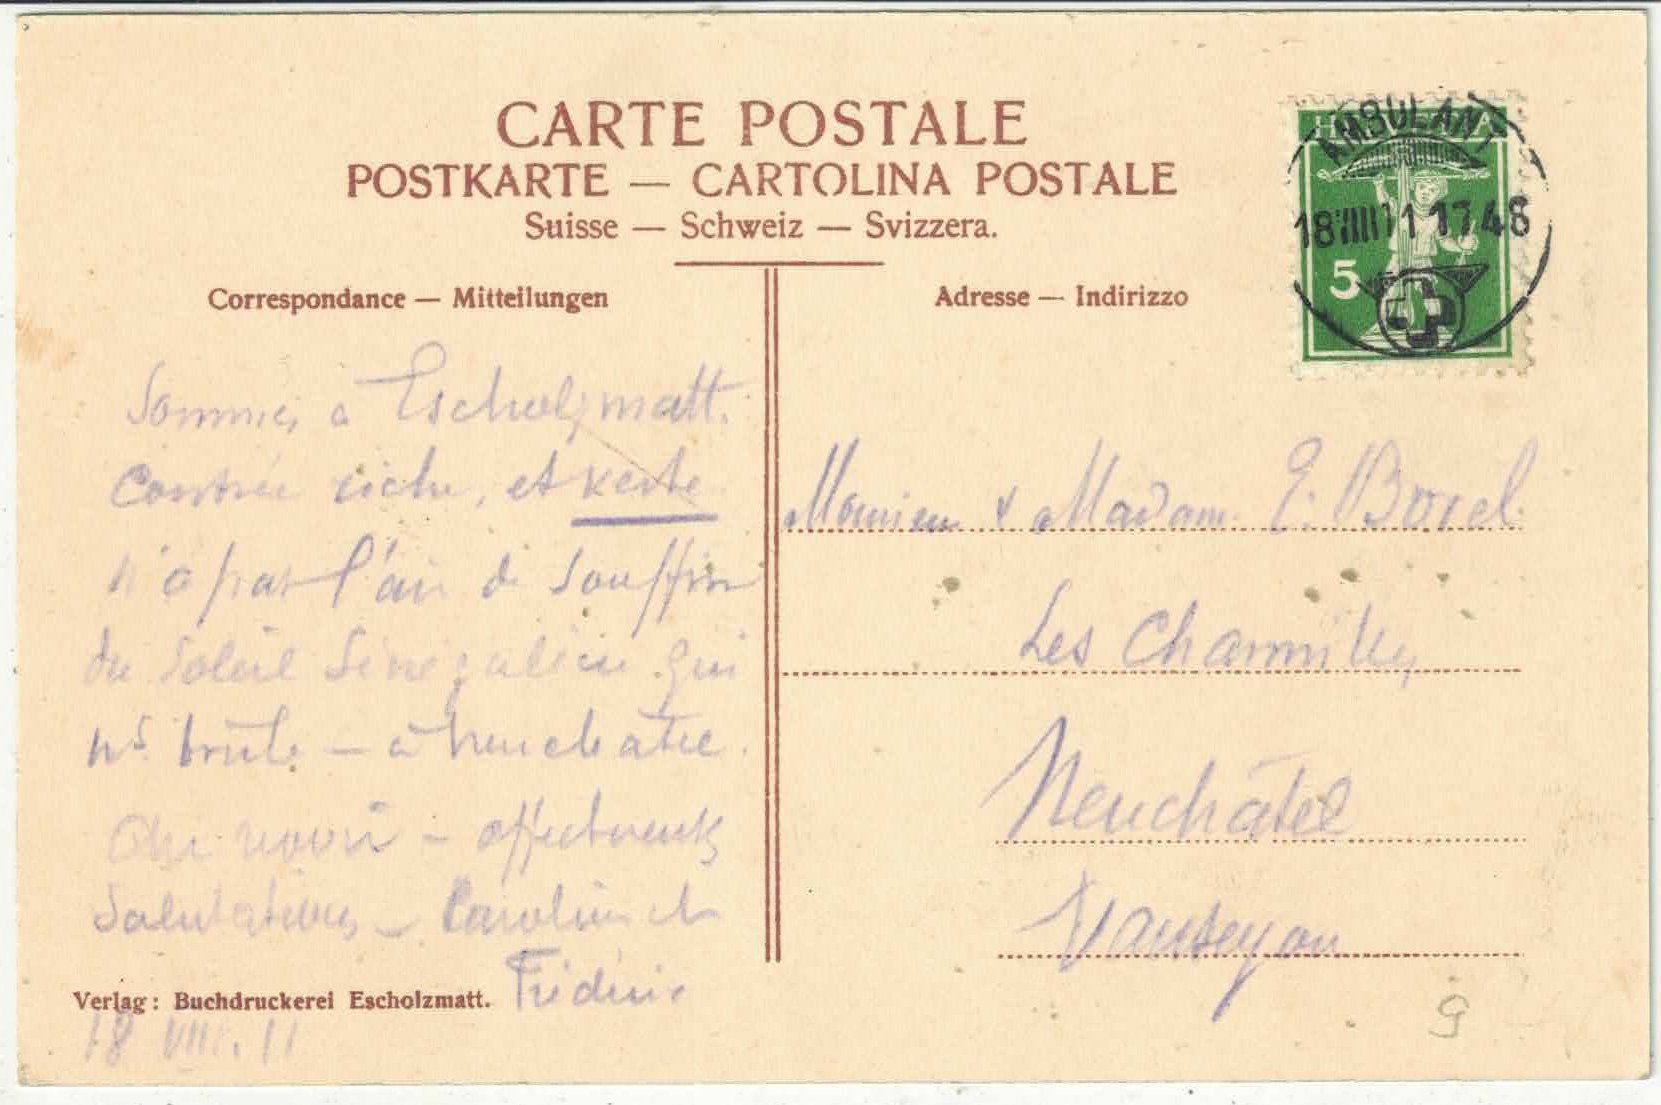 CARTE POSTALE
POSTKARTE — CARTOLINA POSTALE
Suisse — Schweiz — Svizzera.
Correspondance — Mitteilungen
Adresse — Indirizzo
AMBULANT
18 VIII 11 17 48
5
Sommes à Escholzmatt.
Contrée riche, et verte
n'a pas l'air de souffrir
du soleil Sénégalien qui
ns. brûle — à Neuchâtel.
Au revoir — affectueuses
Salutations — Caroline et
Frédéric
18 VIII. 11
Verlag: Buchdruckerei Escholzmatt.
Monsieur & Madame E. Borel
Les Charmilles
Neuchâtel
Vauseyon
9